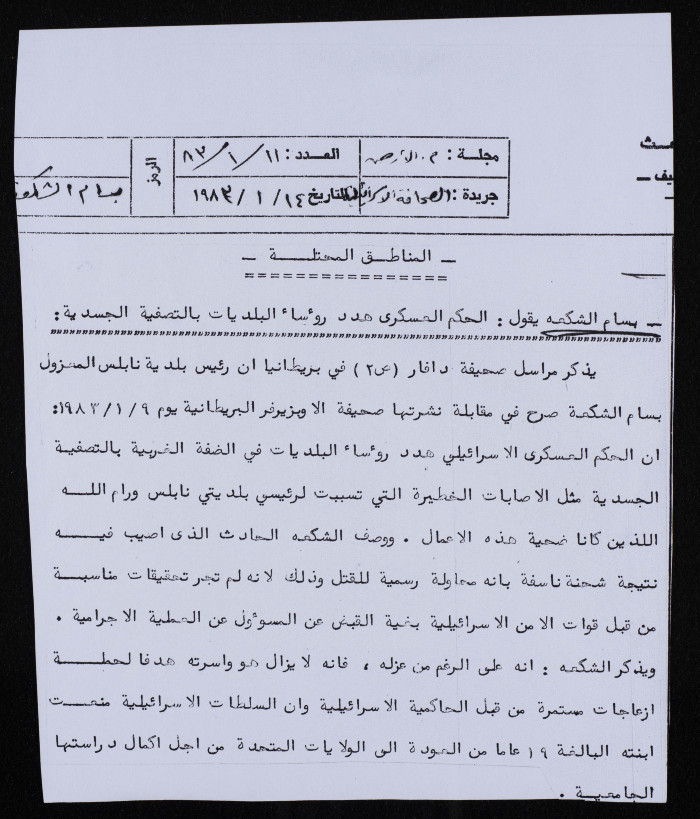 مجلة : م. الأرض العدد : ١١ / ١ / ٨٣ الرمز
جريدة : الصحافة الاسرائيلية التاريخ ١٤ / ١ / ١٩٨٣ بسام الشكعة
ـ المناطق المحتلة ـ
ـ بسام الشكعه يقول : الحكم العسكرى هدد روٴساٴ البلديات بالتصفية الجسدية :
يذكر مراسل صحيفة دافار (ص٢) في بريطانيا ان رئيس بلدية نابلس المعزول
بسام الشكعة صرح في مقابلة نشرتها صحيفة الاوبزيرفر البريطانية يوم ٩/١/١٩٨٣:
ان الحكم العسكرى الاسرائيلي هدد روٴساٴ البلديات في الضفة الغربية بالتصفية
الجسدية مثل الاصابات الخطيرة التي تسببت لرئيسي بلديتي نابلس ورام اللـه
اللذين كانا ضحية هذه الاعمال . ووصف الشكعه الحادث الذى اصيب فيـه
نتيجة شحنة ناسفة بانه محاولة رسمية للقتل وذلك لانه لم تجر تحقيقات مناسبـة
من قبل قوات الامن الاسرائيلية بغية القبض عن المسوٴول عن العملية الاجرامية .
ويذكر الشكعه : انه على الرغم من عزله ، فانه لا يزال هو واسرته هدفا لحملـة
ازعاجات مستمرة من قبل الحاكمية الاسرائيلية وان السلطات الاسرائيلية منعـت
ابنته البالغة ١٩ عاما من العودة الى الولايات المتحدة من اجل اكمال دراستها
الجامعيـة .